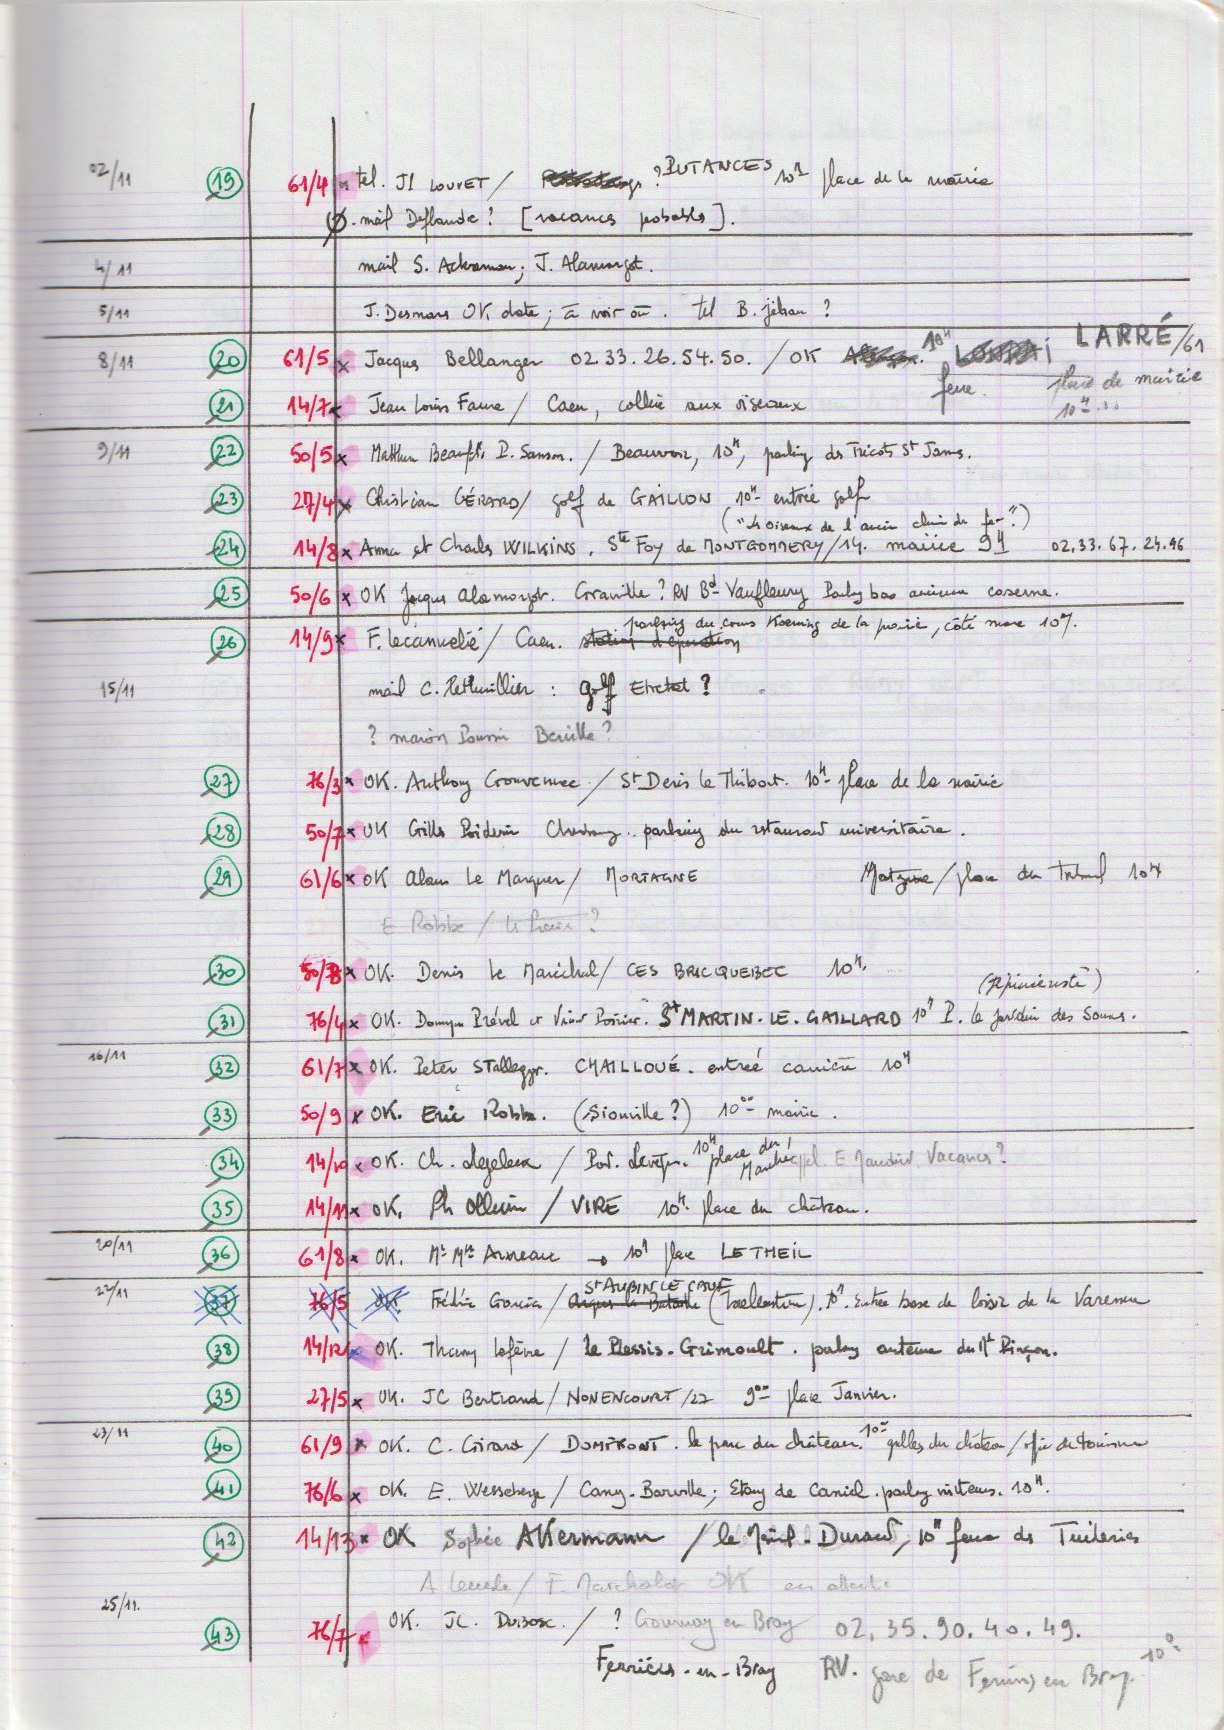 02/11 19 61/4 tel. Jl LOUVET / ? PUTANCES 10H place de la mairie
Ø. mail Deflaude ? [vacances probables].
4/11 mail S. Ackerman ; J. Alamargot.
5/11 J. Desmars OK date ; à voir où. tel B. Jehan ?
8/11 20 61/5 x Jacques Bellanger 02.33.26.54.50. / OK 10H LARRÉ/61
ferme. place de mairie
21 14/7 x Jean Louis Faure / Caen, colline aux oiseaux 10H
9/11 22 50/5 x P. Sanson. / Beauvoir, 10H, parking des Tricots St James.
23 27/4 x Christian GÉRARD / golf de GAILLON 10H entrée golf
("4 oiseaux de l'ancien chemin de fer" ?)
24 14/8 x Anna et Charles WILKINS. Ste FOY de MONTGOMMERY/14. mairie 9H 02.33.67.24.96
25 50/6 x OK Jacques Alamargot. Granville ? RV Bd Vaufleury Parking bas ancienne caserne.
parking du cours Koening de la prairie, côté mare 10H.
26 14/9 x F. Lecanuelié / Caen. station d'épuration
15/11 mail C. : golf Etretat ?
? maison Poumi Berville ?
27 76/3 x OK. Anthony / St Denis le Thibout. 10H place de la mairie
28 50/7 x OK Gilles Poiderin Cherbourg. parking du restaurant universitaire.
29 61/6 x OK Alain Le Marquer / MORTAGNE / place du Tribunal 10H
E Robbe / ?
30 50/8 x OK. Denis Le Maréchal / CES BRICQUEBEC 10H.
(Pépiniériste)
31 76/4 x OK. Prével et Poirier. St MARTIN-LE-GAILLARD 10H P. le jardin des Sources.
16/11 32 61/7 x OK. Peter Stallegger. CHAILLOUÉ. entrée carrière 10H
33 50/9 x OK. Eric Robbe. (Siouville ?) 10°° mairie.
34 14/10 x OK. Ch. / Pont Levêque. 10H place du Marché / E Vacances ?
35 14/11 x OK. Ph / VIRE 10H. place du château.
20/11 36 61/8 x OK. Mr Mme → 10H place LE THEIL
St AUBIN LE CAUF
22/11 37 76/5 OK. Frédéric Garcia / Arques la Bataille. 10H. Entrée base de loisir de la Varenne
38 14/12 x OK. Thierry Lefèvre / Le Plessis-Grimoult. parking antenne du Mt Pinçon.
39 27/5 x OK. JC Bertrand / NONENCOURT/27 9°° place Janvier.
23/11 40 61/9 x OK. C. Girard / DOMFRONT. le parc du château. 10°° grilles du château / office de tourisme
41 76/6 x OK. E. / Cany-Barville ; Etang de Caniel. parking visiteurs. 10H.
42 14/13 x OK Sophie AKermann / le Mesnil-Durand, 10H ferme des Tuileries
A / F. OK en attente
25/11. 43 76/7 x OK. JC. DUBOSC. / ? Gournay en Bray 02.35.90.40.49.
Ferrières-en-Bray RV. gare de Ferrières en Bray. 10°°